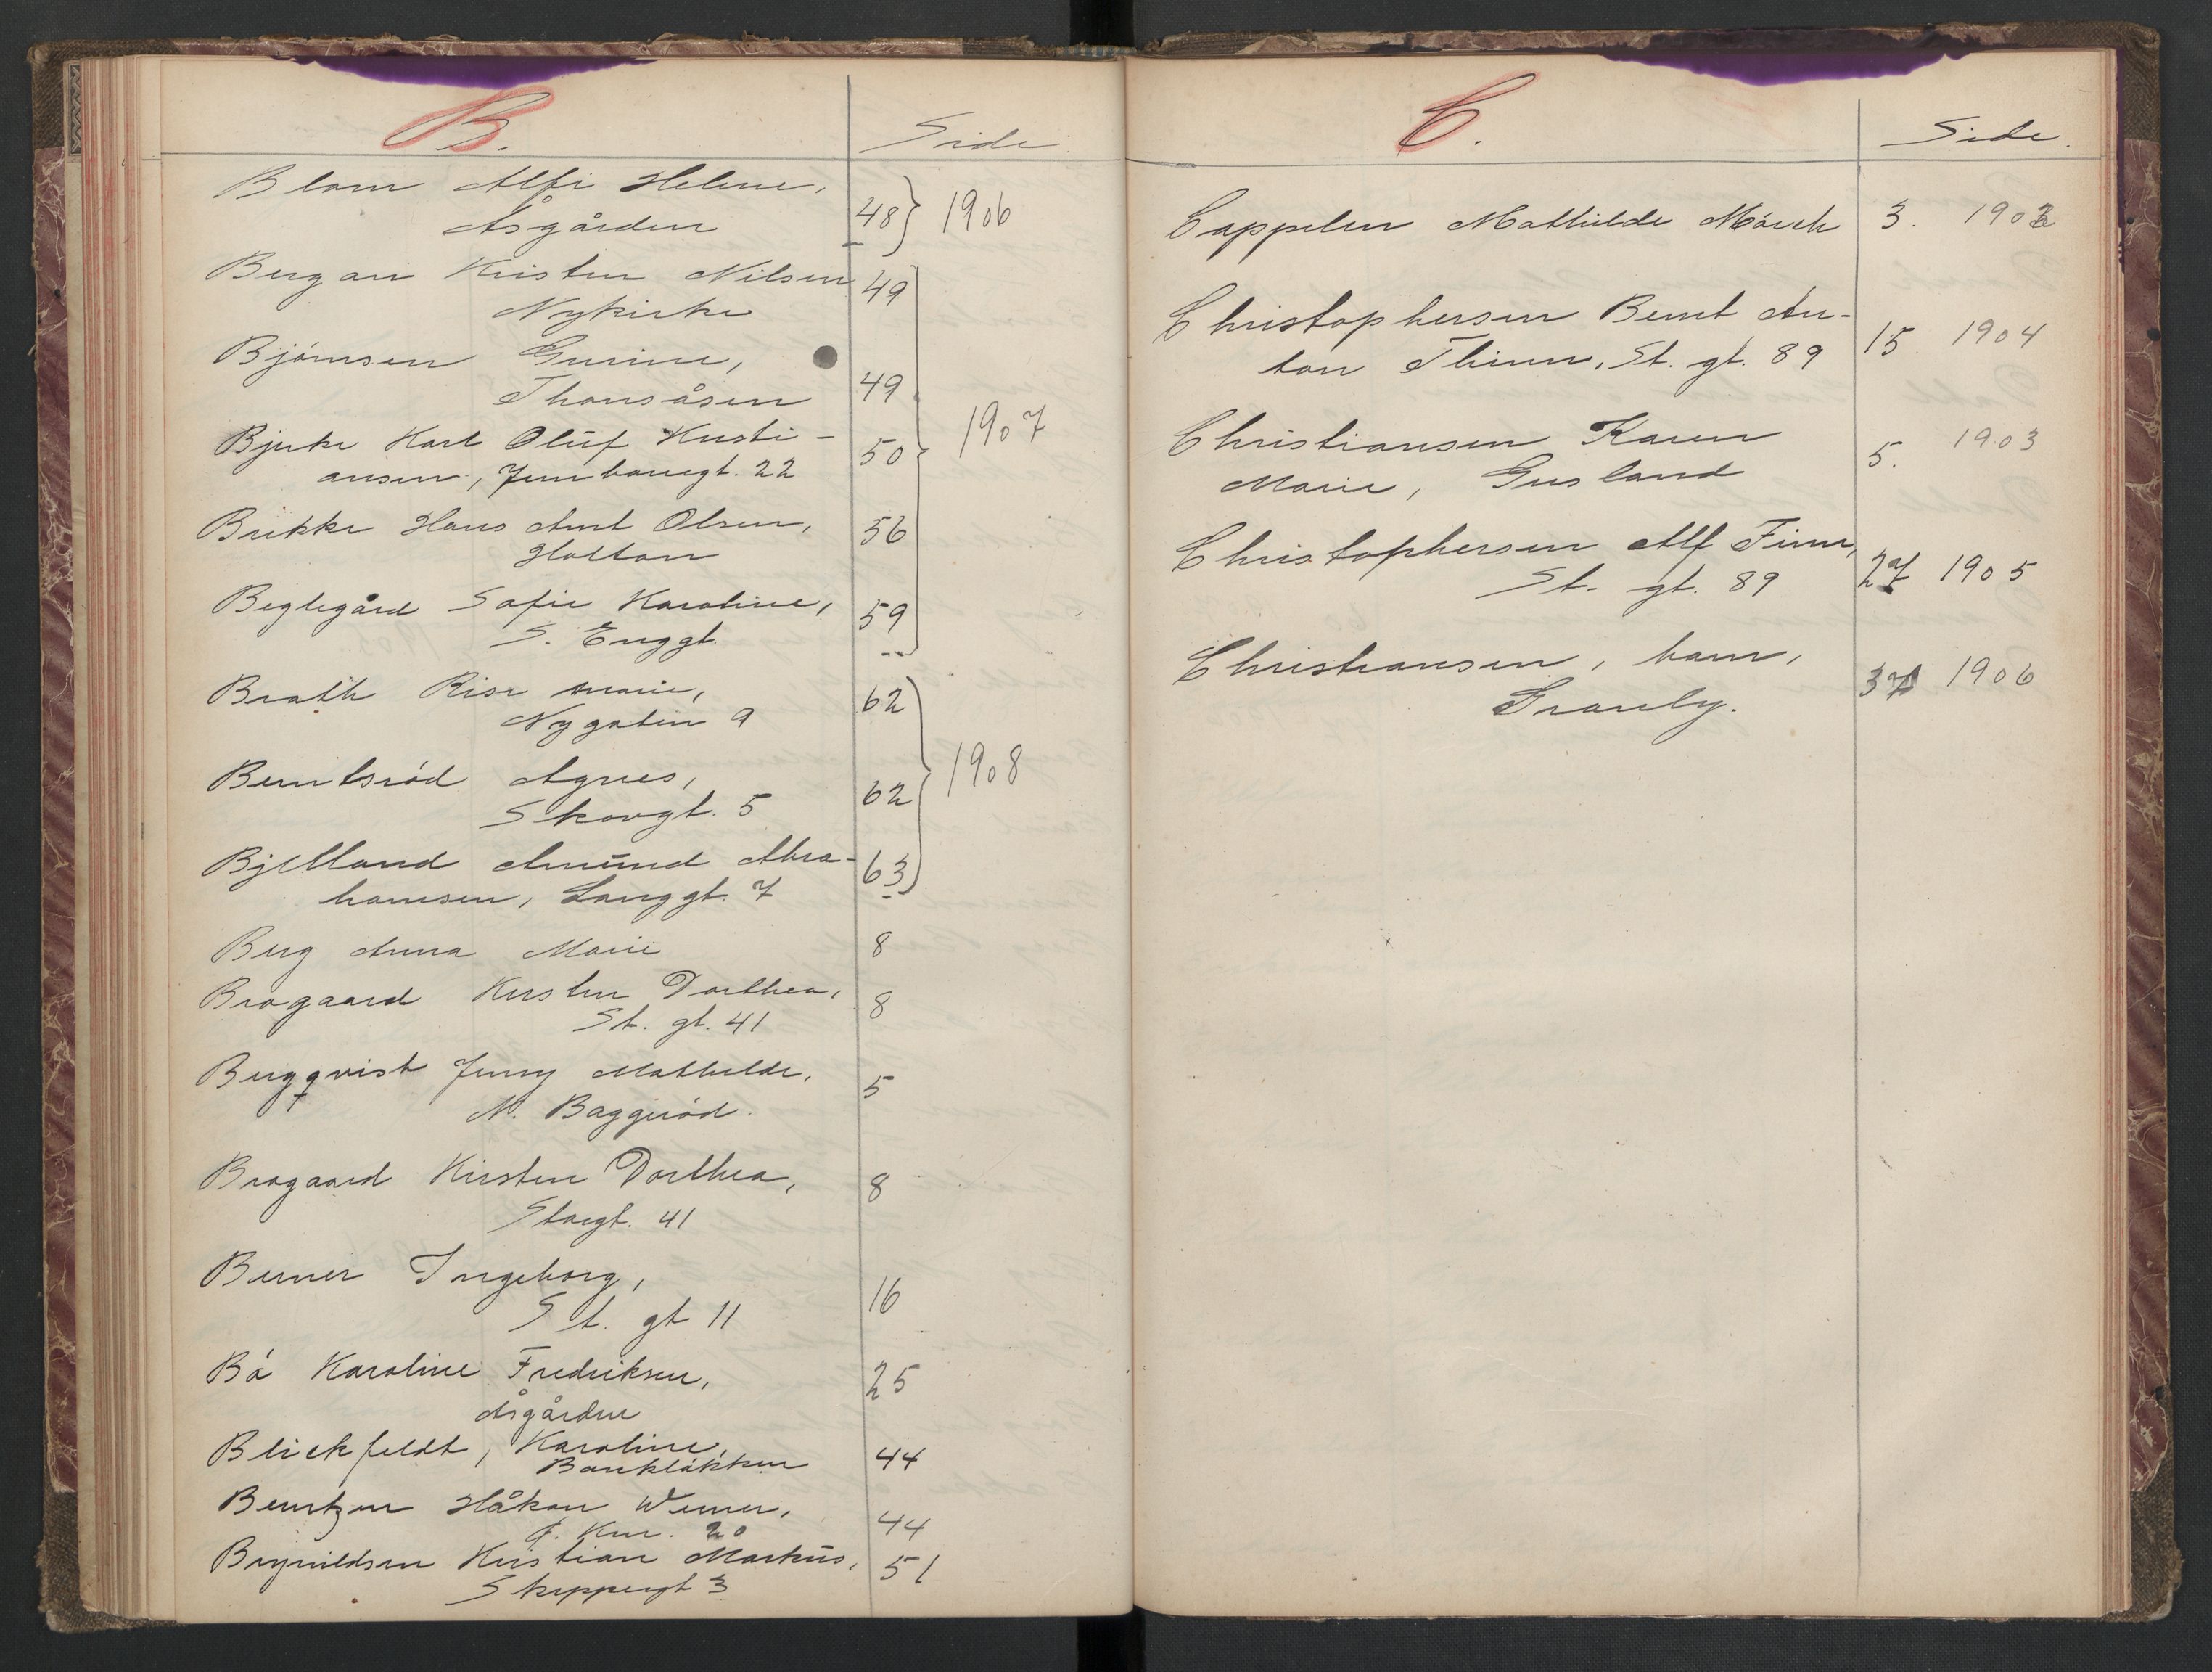 B.
Side
Blom Alfi Helene,
Åsgården 48 } 1906
Bergan Kristen Nilsen 49
Nykirke
Bjørnsen Gurine,
Thorsåsen 49
Bjerke Karl Oluf Kristi- 50 } 1907
ansen, Jernbanegt. 22
Brekke Hans Arnt Olsen, 56
Holtan
Beglegård Sofie Karoline, 59
S. Enggt.
Brath Risa Marie, 62
Nygaten 9
Berntsrød Agnes, 62 } 1908
Skovgt. 5
Bjelland Amund Abra- 63
hamsen, Langgt. 7
Berg Anna Marie 8
Brogaard Kirsten Dorthea, 8
St. gt. 41
Bergqvist Jenny Mathilde, 5
N. Baggerød.
Brogaard Kirsten Dorthea, 8
Storgt. 41
Berner Ingeborg, 16
St. gt 11
Bø Karoline Fredriksen, 25
Åsgården
Blickfeldt, Karoline, 44
Bankløkken
Berntzen Håkon Werner, 44
20
Brynildsen Kristian Markus, 51
Skippergt 3
C.
Side.
Cappelen Mathilde Mørch 3. 1903
Christophersen Bernt An-
ton Thinn, St. gt. 89 15 1904
Christiansen Karen 5. 1903
Marie, Gusland
Christophersen Alf Finn, 27 1905
St. gt. 89
Christiansen, barn, 37 1906
Granly.